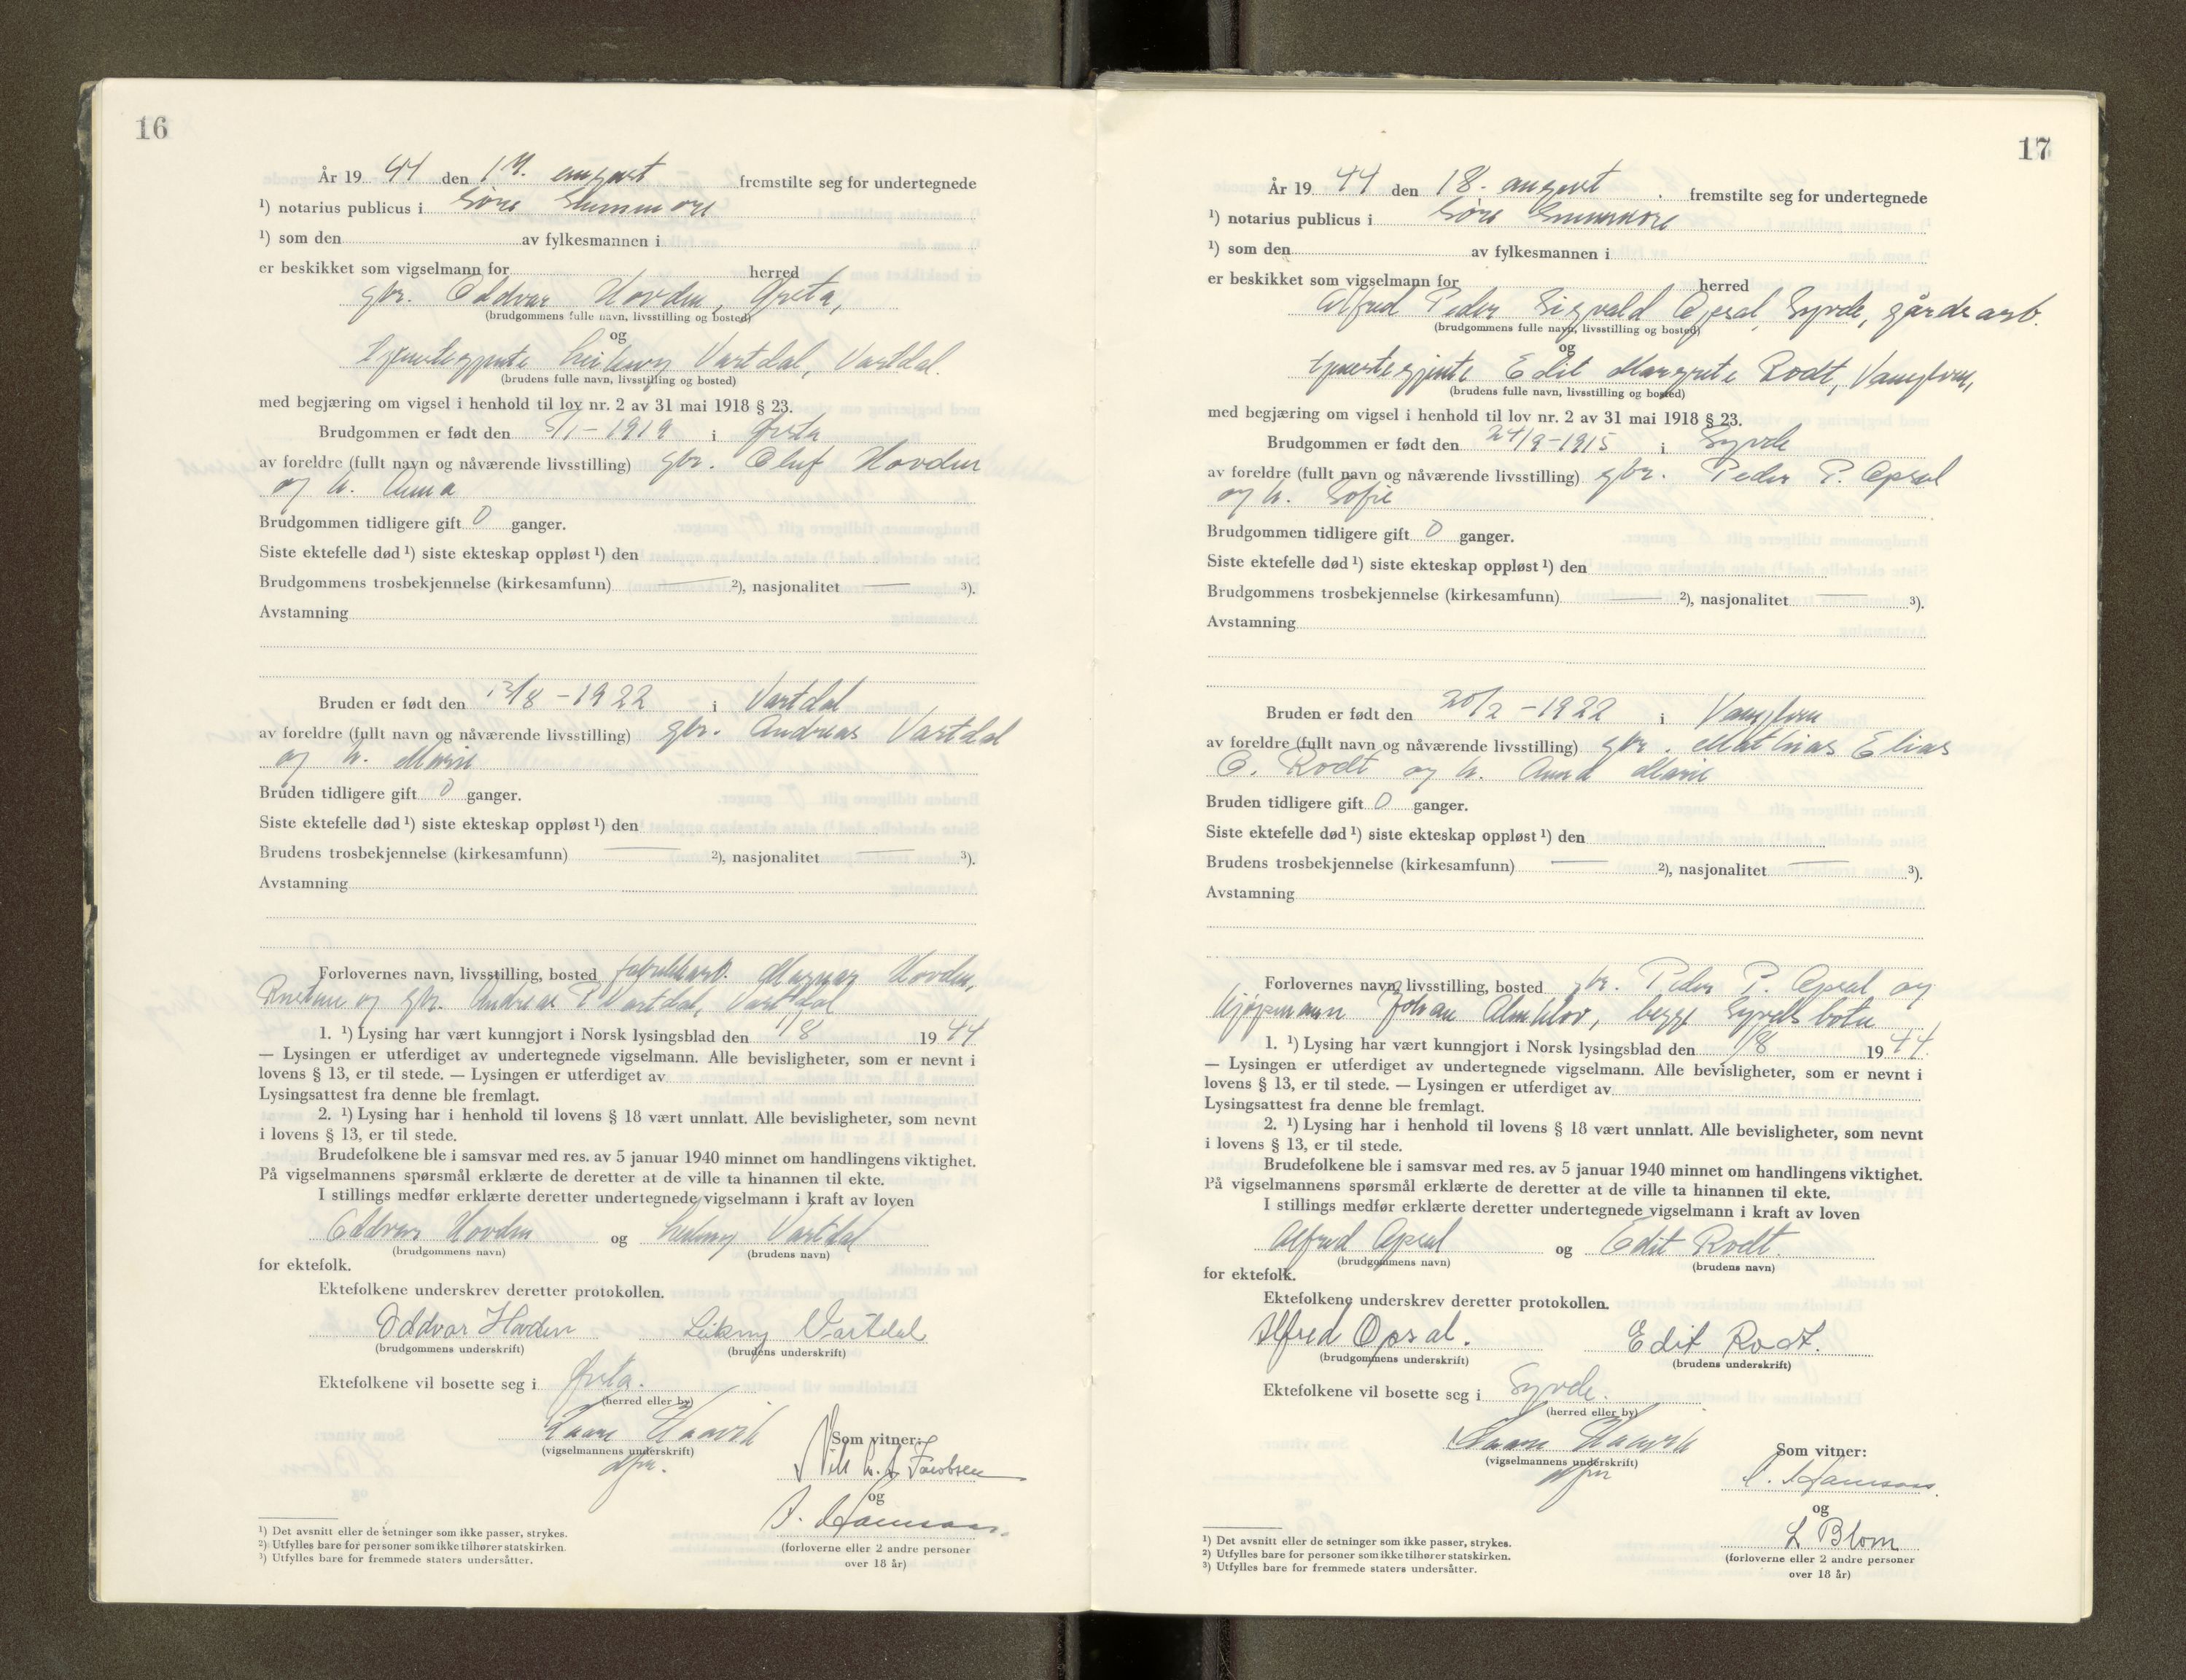 16
År 19 44 den 17. august fremstilte seg for undertegnede
¹) notarius publicus i Søre Sunnmøre
¹) som den av fylkesmannen i
er beskikket som vigselmann for herred
gbr. Oddvar Hovden, Ørsta,
(brudgommens fulle navn, livsstilling og bosted)
og
tjenestegjente Leikny Vartdal, Vartdal.
(brudens fulle navn, livsstilling og bosted)
med begjæring om vigsel i henhold til lov nr. 2 av 31 mai 1918 § 23.
Brudgommen er født den 5/1 - 1919 i Ørsta
av foreldre (fullt navn og nåværende livsstilling) gbr. Oluf Hovden
og h. Anna
Brudgommen tidligere gift 0 ganger.
Siste ektefelle død ¹) siste ekteskap oppløst ¹) den
Brudgommens trosbekjennelse (kirkesamfunn) — ²), nasjonalitet — ³).
Avstamning
Bruden er født den 13/8 - 1922 i Vartdal
av foreldre (fullt navn og nåværende livsstilling) gbr. Andreas Vartdal
og h. Marie
Bruden tidligere gift 0 ganger.
Siste ektefelle død ¹) siste ekteskap oppløst ¹) den
Brudens trosbekjennelse (kirkesamfunn) — ²), nasjonalitet — ³).
Avstamning
Forlovernes navn, livsstilling, bosted fabrikkarb. Magnar Hovden,
og gbr. Andreas P. Vartdal, Vartdal
1. ¹) Lysing har vært kunngjort i Norsk lysingsblad den 1/8 19 44
— Lysingen er utferdiget av undertegnede vigselmann. Alle bevisligheter, som er nevnt i
lovens § 13, er til stede. — Lysingen er utferdiget av
Lysingsattest fra denne ble fremlagt.
2. ¹) Lysing har i henhold til lovens § 18 vært unnlatt. Alle bevisligheter, som nevnt
i lovens § 13, er til stede.
Brudefolkene ble i samsvar med res. av 5 januar 1940 minnet om handlingens viktighet.
På vigselmannens spørsmål erklærte de deretter at de ville ta hinannen til ekte.
I stillings medfør erklærte deretter undertegnede vigselmann i kraft av loven
Oddvar Hovden og Leikny Vartdal
(brudgommens navn) (brudens navn)
for ektefolk.
Ektefolkene underskrev deretter protokollen.
Oddvar Hovden Leikny Vartdal
(brudgommens underskrift) (brudens underskrift)
Ektefolkene vil bosette seg i Ørsta.
(herred eller by)
Haavik
(vigselmannens underskrift)
dfm.
Som vitner:
Jacobsen
og
(forloverne eller 2 andre personer
over 18 år)
¹) Det avsnitt eller de setninger som ikke passer, strykes.
²) Utfylles bare for personer som ikke tilhører statskirken.
³) Utfylles bare for fremmede staters undersåtter.
17
År 19 44 den 18. august. fremstilte seg for undertegnede
¹) notarius publicus i Søre Sunnmøre
¹) som den av fylkesmannen i
er beskikket som vigselmann for herred
Alfred Peder Sigvald Opsal, Syvde, gårdsarb.
(brudgommens fulle navn, livsstilling og bosted)
og
tjenestegjente Edit Margrete Rodt, Vanylven,
(brudens fulle navn, livsstilling og bosted)
med begjæring om vigsel i henhold til lov nr. 2 av 31 mai 1918 § 23.
Brudgommen er født den 24/9 - 1915 i Syvde
av foreldre (fullt navn og nåværende livsstilling) gbr. Peder P. Opsal
og h. Sofie
Brudgommen tidligere gift 0 ganger.
Siste ektefelle død ¹) siste ekteskap oppløst ¹) den
Brudgommens trosbekjennelse (kirkesamfunn) — ²), nasjonalitet — ³).
Avstamning
Bruden er født den 20/2 - 1922 i Vanylven
av foreldre (fullt navn og nåværende livsstilling) gbr. Mathias Elias
E. Rodt og h. Anna Marie
Bruden tidligere gift 0 ganger.
Siste ektefelle død ¹) siste ekteskap oppløst ¹) den
Brudens trosbekjennelse (kirkesamfunn) — ²), nasjonalitet — ³).
Avstamning
Forlovernes navn, livsstilling, bosted gbr. Peder P. Opsal og
kjøpmann Johan Almklov, begge Syvdsbotn
1. ¹) Lysing har vært kunngjort i Norsk lysingsblad den 1/8 19 44.
— Lysingen er utferdiget av undertegnede vigselmann. Alle bevisligheter, som er nevnt i
lovens § 13, er til stede. — Lysingen er utferdiget av
Lysingsattest fra denne ble fremlagt.
2. ¹) Lysing har i henhold til lovens § 18 vært unnlatt. Alle bevisligheter, som nevnt
i lovens § 13, er til stede.
Brudefolkene ble i samsvar med res. av 5 januar 1940 minnet om handlingens viktighet.
På vigselmannens spørsmål erklærte de deretter at de ville ta hinannen til ekte.
I stillings medfør erklærte deretter undertegnede vigselmann i kraft av loven
Alfred Opsal og Edit Rodt.
(brudgommens navn) (brudens navn)
for ektefolk.
Ektefolkene underskrev deretter protokollen.
Alfred Opsal. Edit Rodt.
(brudgommens underskrift) (brudens underskrift)
Ektefolkene vil bosette seg i Syvde.
(herred eller by)
Haavik
(vigselmannens underskrift)
dfm
Som vitner:
og
L Blom
(forloverne eller 2 andre personer
over 18 år)
¹) Det avsnitt eller de setninger som ikke passer, strykes.
²) Utfylles bare for personer som ikke tilhører statskirken.
³) Utfylles bare for fremmede staters undersåtter.